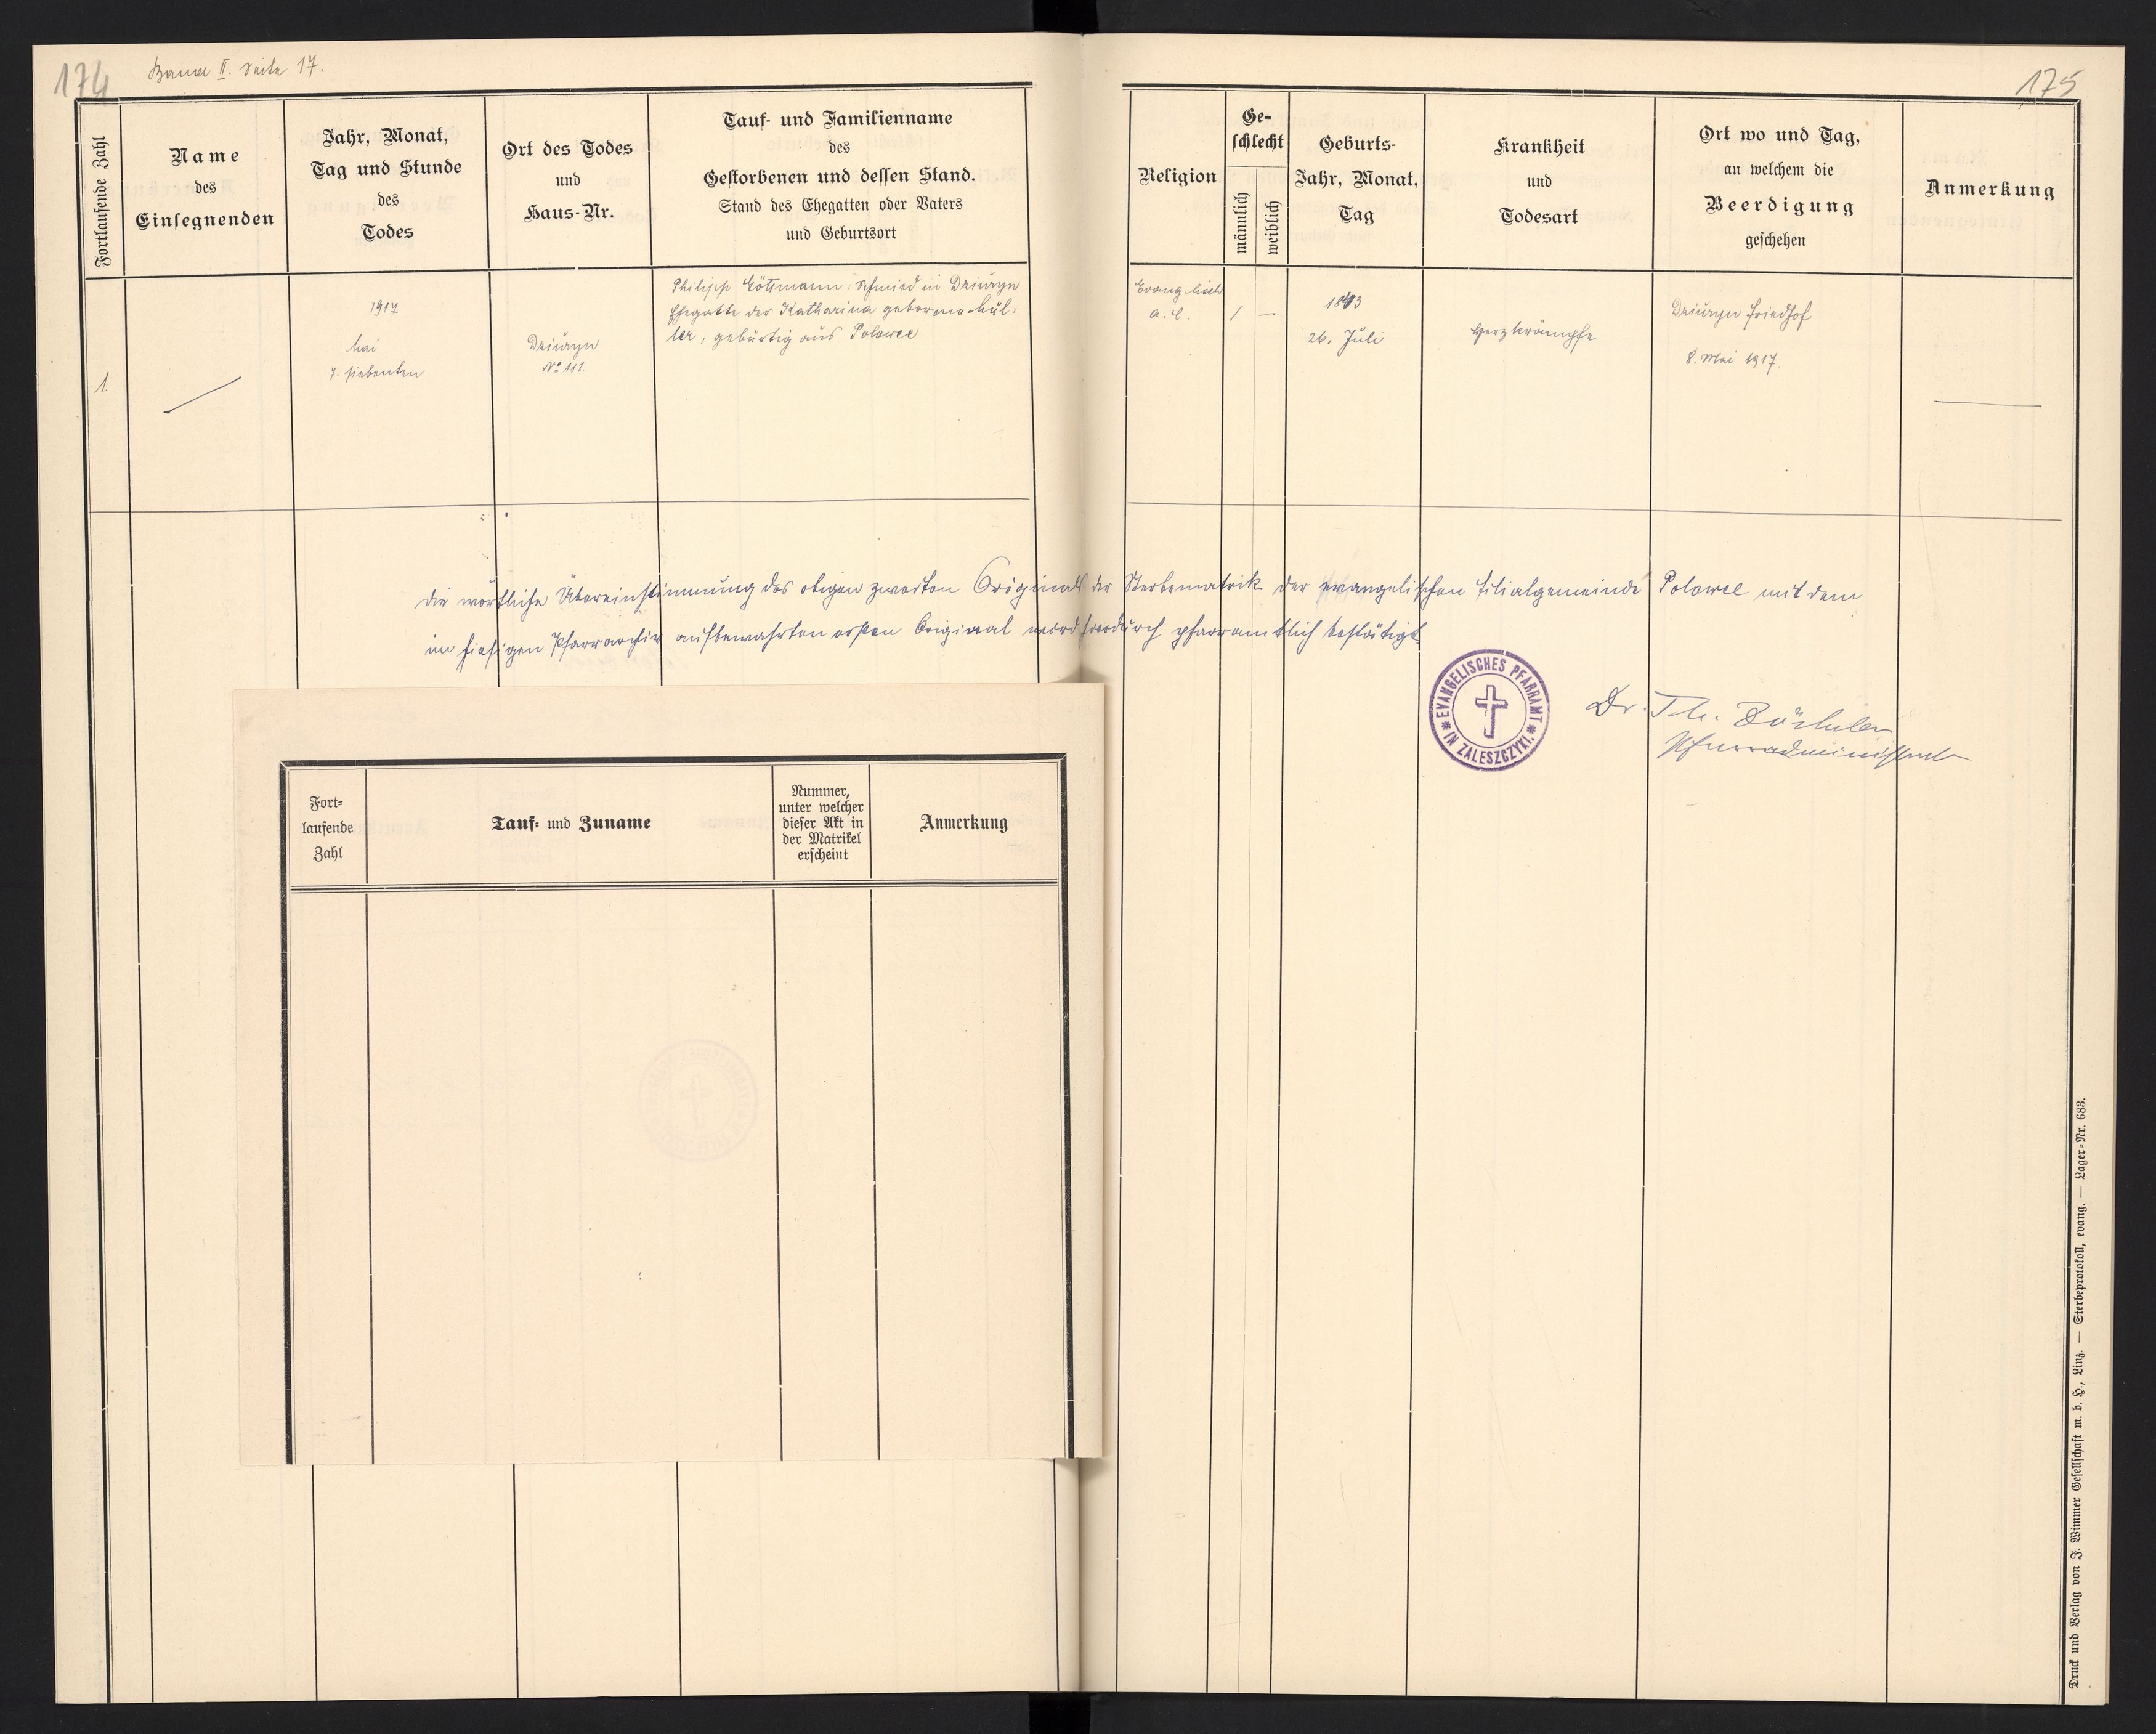 174
Band II. Seite 17.
175
Fortlaufende Zahl
Name
des
Einsegnenden
Jahr, Monat,
Tag und Stunde
des
Todes
Ort des Todes
und
Haus-Nr.
Tauf- und Familienname
des
Gestorbenen und dessen Stand.
Stand des Ehegatten oder Vaters
und Geburtsort
Religion
Ge-
schlecht
männlich
weiblich
Geburts-
Jahr, Monat,
Tag
Krankheit
und
Todesart
Ort wo und Tag,
an welchem die
Beerdigung
geschehen
Anmerkung
1.
1917
Mai
7. siebenten
Dziuryn
No 111.
Philipp Schmied in Dziuryn
Ehegatte der Katharina geborene
ter, gebürtig aus Polowce
Evang lisch
A. C.
/ —
1843
26. Juli
Herzkrämpfe
Dziuryn Friedhof
8. Mai 1917.
Die wörtliche Übereinstimmung des obigen zweiten Originals der Sterbematrik der evangelischen Filialgemeinde Polowce mit dem
im hiesigen Pfarrarchiv aufbewahrten ersten Original wird hierdurch pfarramtlich bestätigt
EVANGELISCHES PFARRAMT
IN ZALESZCZYKI.
Dr. Th.
Pfarradministrator
Fort-
laufende
Zahl
Tauf- und Zuname
Nummer,
unter welcher
dieser Akt in
der Matrikel
erscheint
Anmerkung
Druck und Verlag von J. Wimmer Gesellschaft m. b. H., Linz. — Sterbeprotokoll, evang. — Lager-Nr. 683.